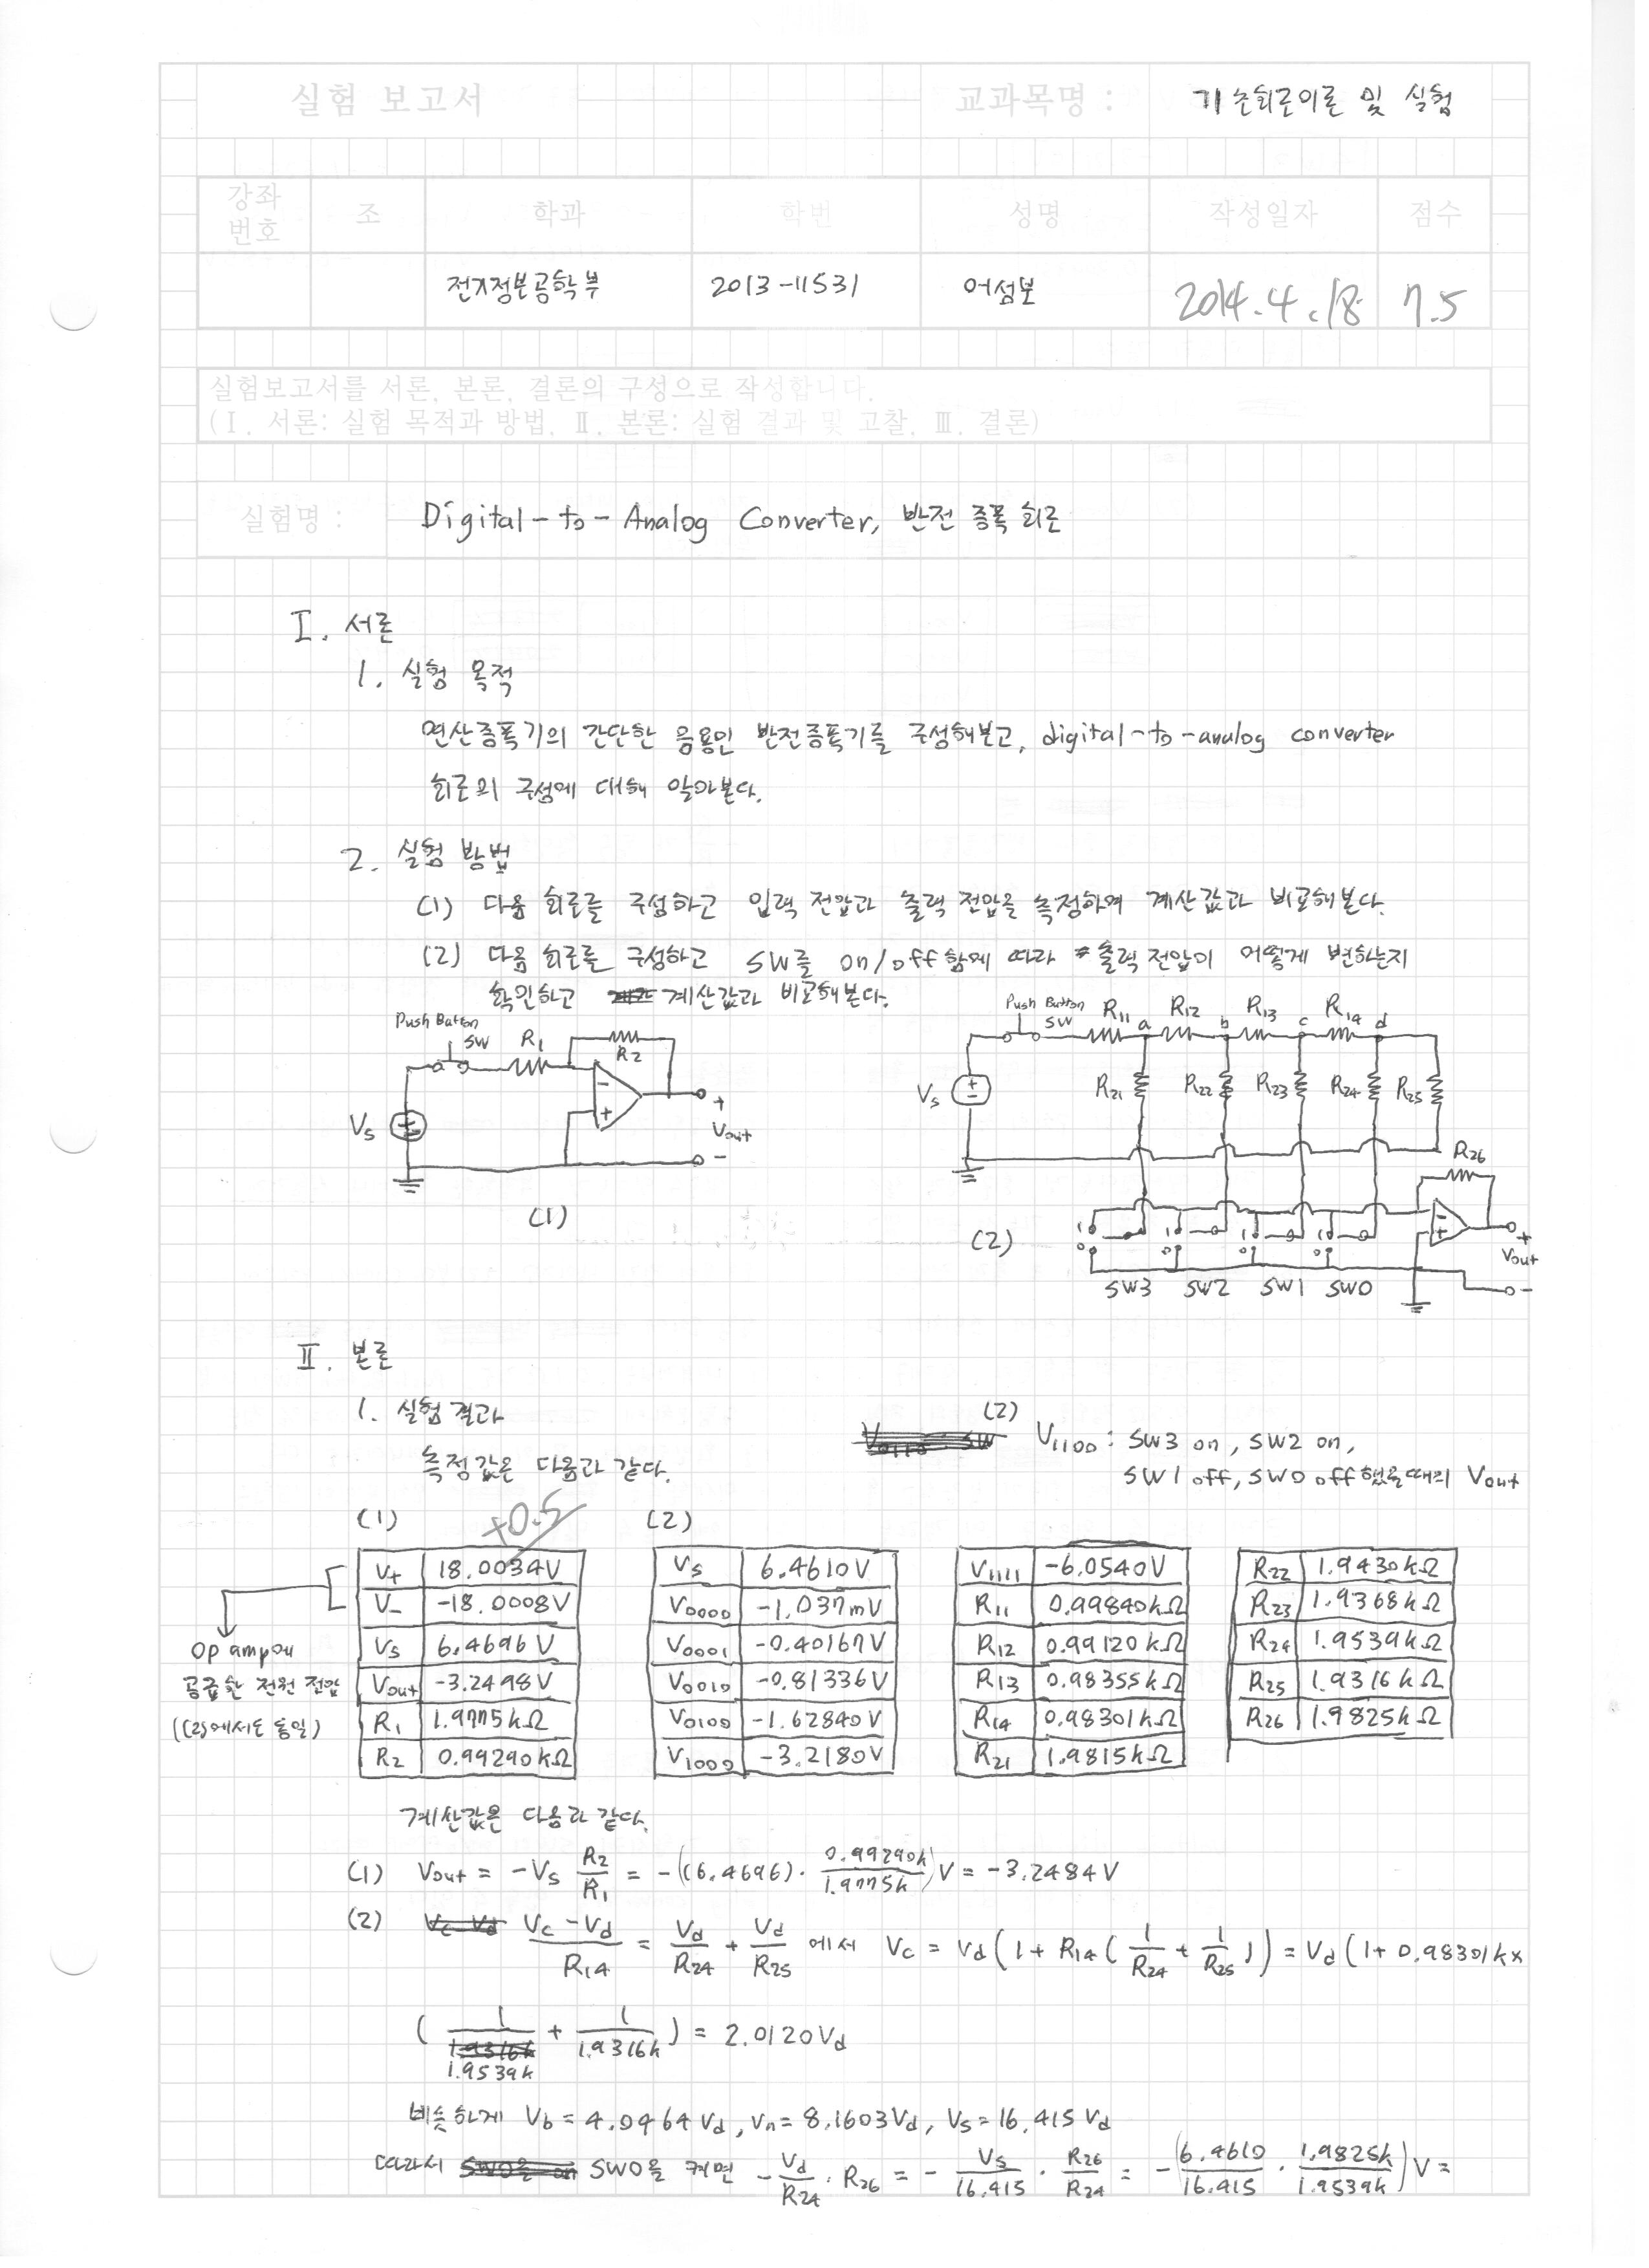 실험 보고서
교과목명 : 기초회로이론 및 실험
강좌번호 조 학과 학번 성명 작성일자 점수
전기정보공학부 2013-11531 어성보 2014.4.18 7.5
실험보고서를 서론, 본론, 결론의 구성으로 작성합니다.
(Ⅰ. 서론: 실험 목적과 방법, Ⅱ. 본론: 실험 결과 및 고찰, Ⅲ. 결론)
실험명 : Digital-to-Analog Converter, 반전 증폭 회로
Ⅰ. 서론
1. 실험 목적
연산증폭기의 간단한 응용인 반전증폭기를 구성해보고, digital-to-analog converter
회로의 구성에 대해 알아본다.
2. 실험 방법
(1) 다음 회로를 구성하고 입력 전압과 출력 전압을 측정하여 계산값과 비교해본다.
(2) 다음 회로를 구성하고 SW를 on/off 함에 따라 출력 전압이 어떻게 변하는지
확인하고 계산값과 비교해본다.
Push Button
SW R1
R2
Vs
+
Vout
-
(1)
Push Button
SW R11 a R12 b R13 c R14 d
Vs R21 R22 R23 R24 R25
R26
1 1 1 1
0 0 0 0
SW3 SW2 SW1 SW0
+
Vout
-
(2)
Ⅱ. 본론
1. 실험 결과
측정값은 다음과 같다.
(2)
V1100 : SW3 on, SW2 on,
SW1 off, SW0 off 했을때의 Vout
(1) +0.5
V+ 18.0034V
V- -18.0008V
Vs 6.4696V
Vout -3.2498V
R1 1.9775kΩ
R2 0.99290kΩ
Op amp에
공급한 전원 전압
((2)에서도 동일)
(2)
Vs 6.4610V
V0000 -1.037mV
V0001 -0.40167V
V0010 -0.81336V
V0100 -1.62840V
V1000 -3.2180V
V1111 -6.0540V
R11 0.99840kΩ
R12 0.99120kΩ
R13 0.98355kΩ
R14 0.98301kΩ
R21 1.9815kΩ
R22 1.9430kΩ
R23 1.9368kΩ
R24 1.9539kΩ
R25 1.9316kΩ
R26 1.9825kΩ
계산값은 다음과 같다.
(1) Vout = -Vs R2/R1 = -((6.4696)·0.99290k/1.9775k)V = -3.2484V
(2) (Vc-Vd)/R14 = Vd/R24 + Vd/R25 에서 Vc = Vd(1+R14(1/R24+1/R25)) = Vd(1+0.98301k×
(1/1.9539k + 1/1.9316k) = 2.0120Vd
비슷하게 Vb=4.0464Vd, Va=8.1603Vd, Vs=16.415Vd
따라서 SW0을 켜면 -Vd/R24·R26 = -Vs/16.415·R26/R24 = -(6.4610/16.415·1.9825k/1.9539k)V =